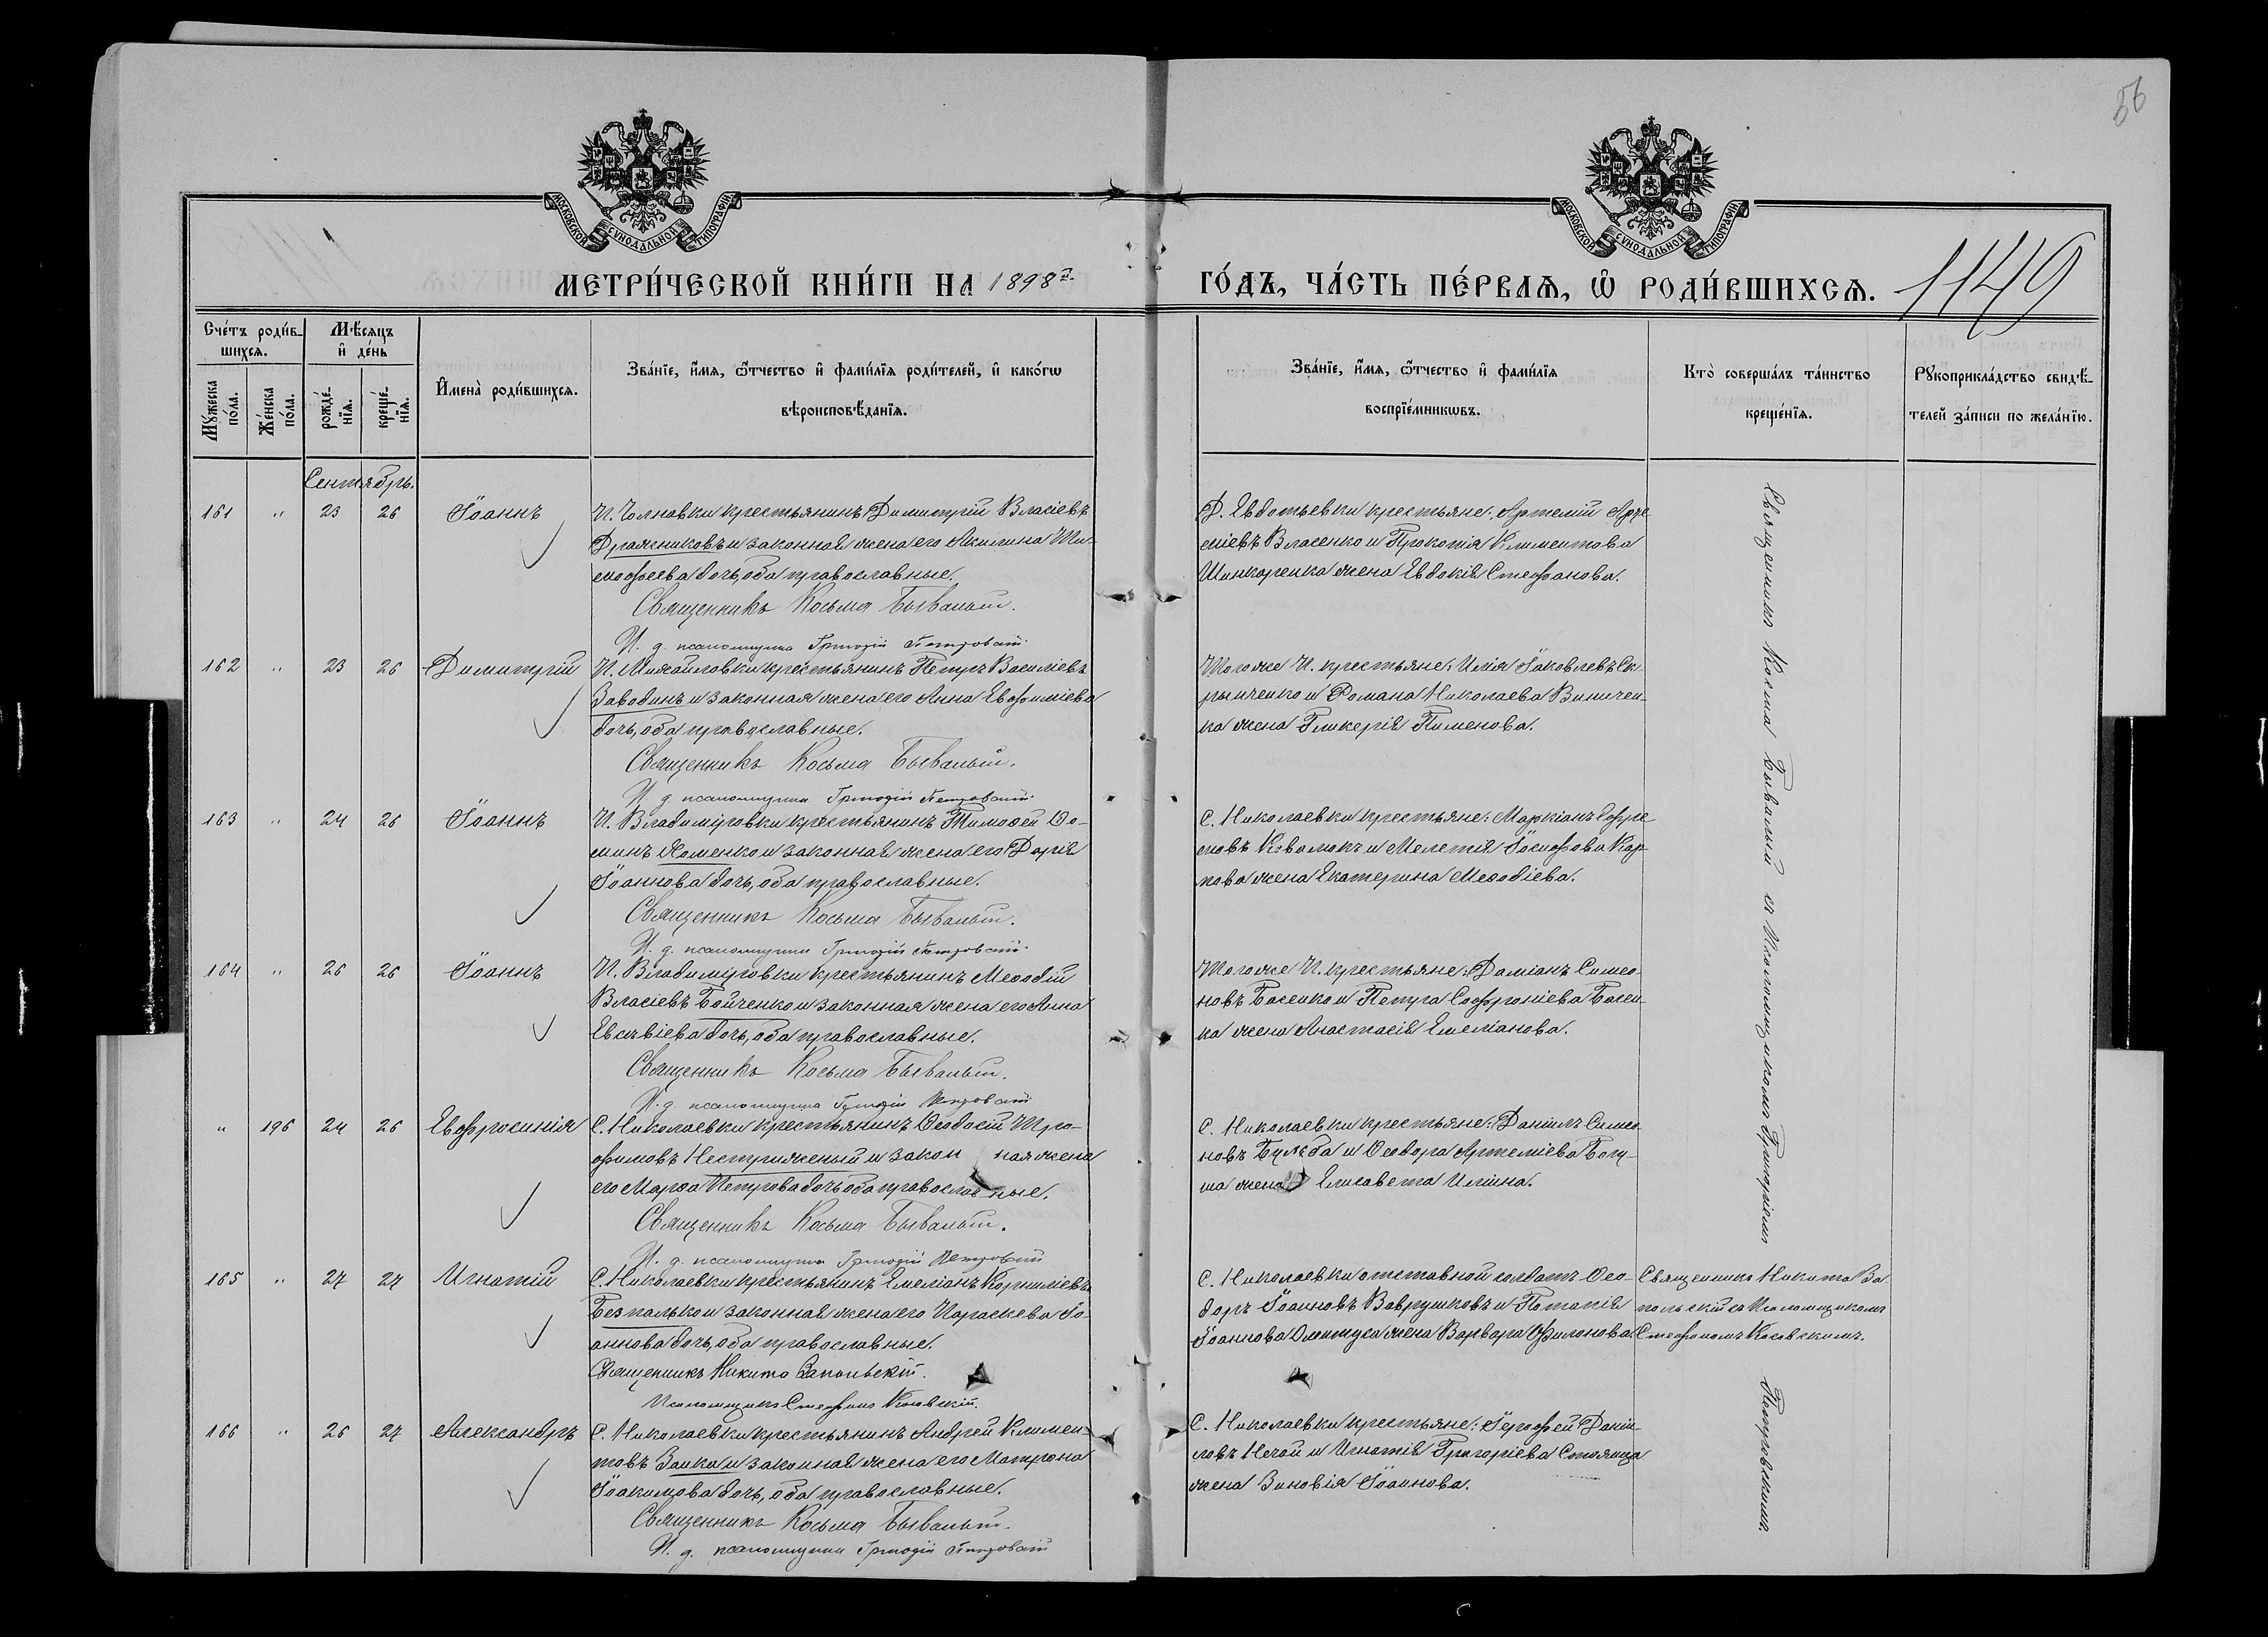 56
МОСКОВСКОЙ СѴНОДАЛЬНОЙ ТИПОГРАФІИ
МОСКОВСКОЙ СѴНОДАЛЬНОЙ ТИПОГРАФІИ
МЕТРИ́ЧЕСКОЙ КНИ́ГИ НА 1898й
ГО́ДЪ, ЧА́СТЬ ПЕ́РВАѦ, Ѽ РОДИ́ВШИХСѦ. 1149
Сче́тъ роди́в-
шихсѧ.
Мѣ́сѧцъ
и҆ де́нь
Мꙋжеска по́ла.
Же́нска по́ла.
рожде́-нїѧ.
креще́-нїѧ.
И҆мена̀ роди́вшихсѧ.
Зва́нїе, и҆́мѧ, ѻ҆́тчество и҆ фами́лїѧ роди́телей, и҆ како́гѡ
вѣроисповѣ́данїѧ.
Зва́нїе, и҆́мѧ, ѻ҆́тчество и҆ фами́лїѧ
воспрїе́мникѡвъ.
Кто̀ соверша́лъ та́инство
креще́нїѧ.
Рꙋкоприкла́дство свидѣ́-
телей за́писи по жела́нїю.
Сентябрь.
161 " 23 26 Іоаннъ
крестьянинъ Димитрій Власіевъ
Дражниковъ и законная жена его Акилина Ти-
моѳеева дочь, оба православные.
Священникъ Косьма Бывалый.
И. д. псаломщика Григорій Петровскій
Д. Евдотьевки крестьяне: Артемій Арте-
міевъ Власенко и Прокопія Климентова
Шинкаренка жена Евдокія Стефанова.
Священникъ Косма Бывалый съ Псаломщикомъ Григоріемъ Петровскимъ.
162 " 23 26 Димитрій
П. Михайловки крестьянинъ Петръ Василіевъ
Заводинъ и законная жена его Анна Евфиміева
дочь, оба православные.
Священникъ Косьма Бывалый.
И. д. псаломщика Григорій Петровскій
Тогоже П. крестьяне: Илія Іаковлевъ Ск-
рыпченко и Романа Николаева Виничен-
ка жена Гликерія Пименова.
163 " 24 26 Іоаннъ
П. Владиміровки крестьянинъ Тимоѳей Ѳо-
минъ Хоменко и законная жена его Дарія
Іоаннова дочь, оба православные.
Священникъ Косьма Бывалый.
И. д. псаломщика Григорій Петровскій
С. Николаевки крестьяне: Маркіанъ Ефре-
мовъ и Мелетія Іосифова Кар-
пова жена Екатерина Меѳодіева.
164 " 26 26 Іоаннъ
П. Владиміровки крестьянинъ Меѳодій
Власіевъ Бойченко и законная жена его Анна
Евсѣвіева дочь, оба православные.
Священникъ Косьма Бывалый.
И. д. псаломщика Григорій Петровскій
Тогоже П. крестьяне: Даміанъ Симео-
новъ Басенко и Петра Софроніева Басен-
ка жена Анастасія Емеліанова.
" 196 24 26 Евфросинія
С. Николаевки крестьянинъ Ѳеодосій Тро-
фимовъ Нестриженый и законная жена
его Марѳа Петрова дочь оба православные.
Священникъ Косьма Бывалый.
И. д. псаломщика Григорій Петровскій
С. Николаевки крестьяне: Даніилъ Симео-
новъ Бульба и Ѳеодора Артеміева
жена Елисавета Иліина.
165 " 27 27 Игнатій
С. Николаевки крестьянинъ Емеліанъ Корниліевъ
Безпалько и законная жена его Параскева Іо-
аннова дочь, оба православные.
Священникъ Никита Запольскій.
Псаломщикъ Стефанъ Косовскій.
С. Николаевки отставной солдатъ Ѳео-
доръ Іоанновъ Ваврушковъ и Потапія
Іоаннова жена Варвара Филонова.
Священникъ Никита За-
польскій съ Псаломщикомъ
Стефаномъ Косовскимъ.
166 " 26 27 Александръ
С. Николаевки крестьянинъ Андрей Климен-
товъ Заика и законная жена его Матрона
Іоакимова дочь, оба православные.
Священникъ Косьма Бывалый.
И. д. псаломщика Григорій Петровскій
С. Николаевки крестьяне: Іероѳей Даніи-
ловъ Нечай и Игнатія Григоріева
жена Зиновія Іоаннова.